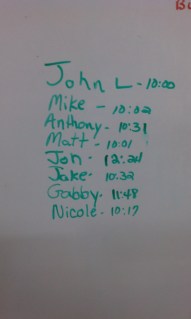 Bu
John L - 10:00
Mike - 10:02
Anthony - 10:31
Matt - 10:01
Jon - 12:24
Jake - 10:32
Gabby - 11:48
Nicole - 10:17